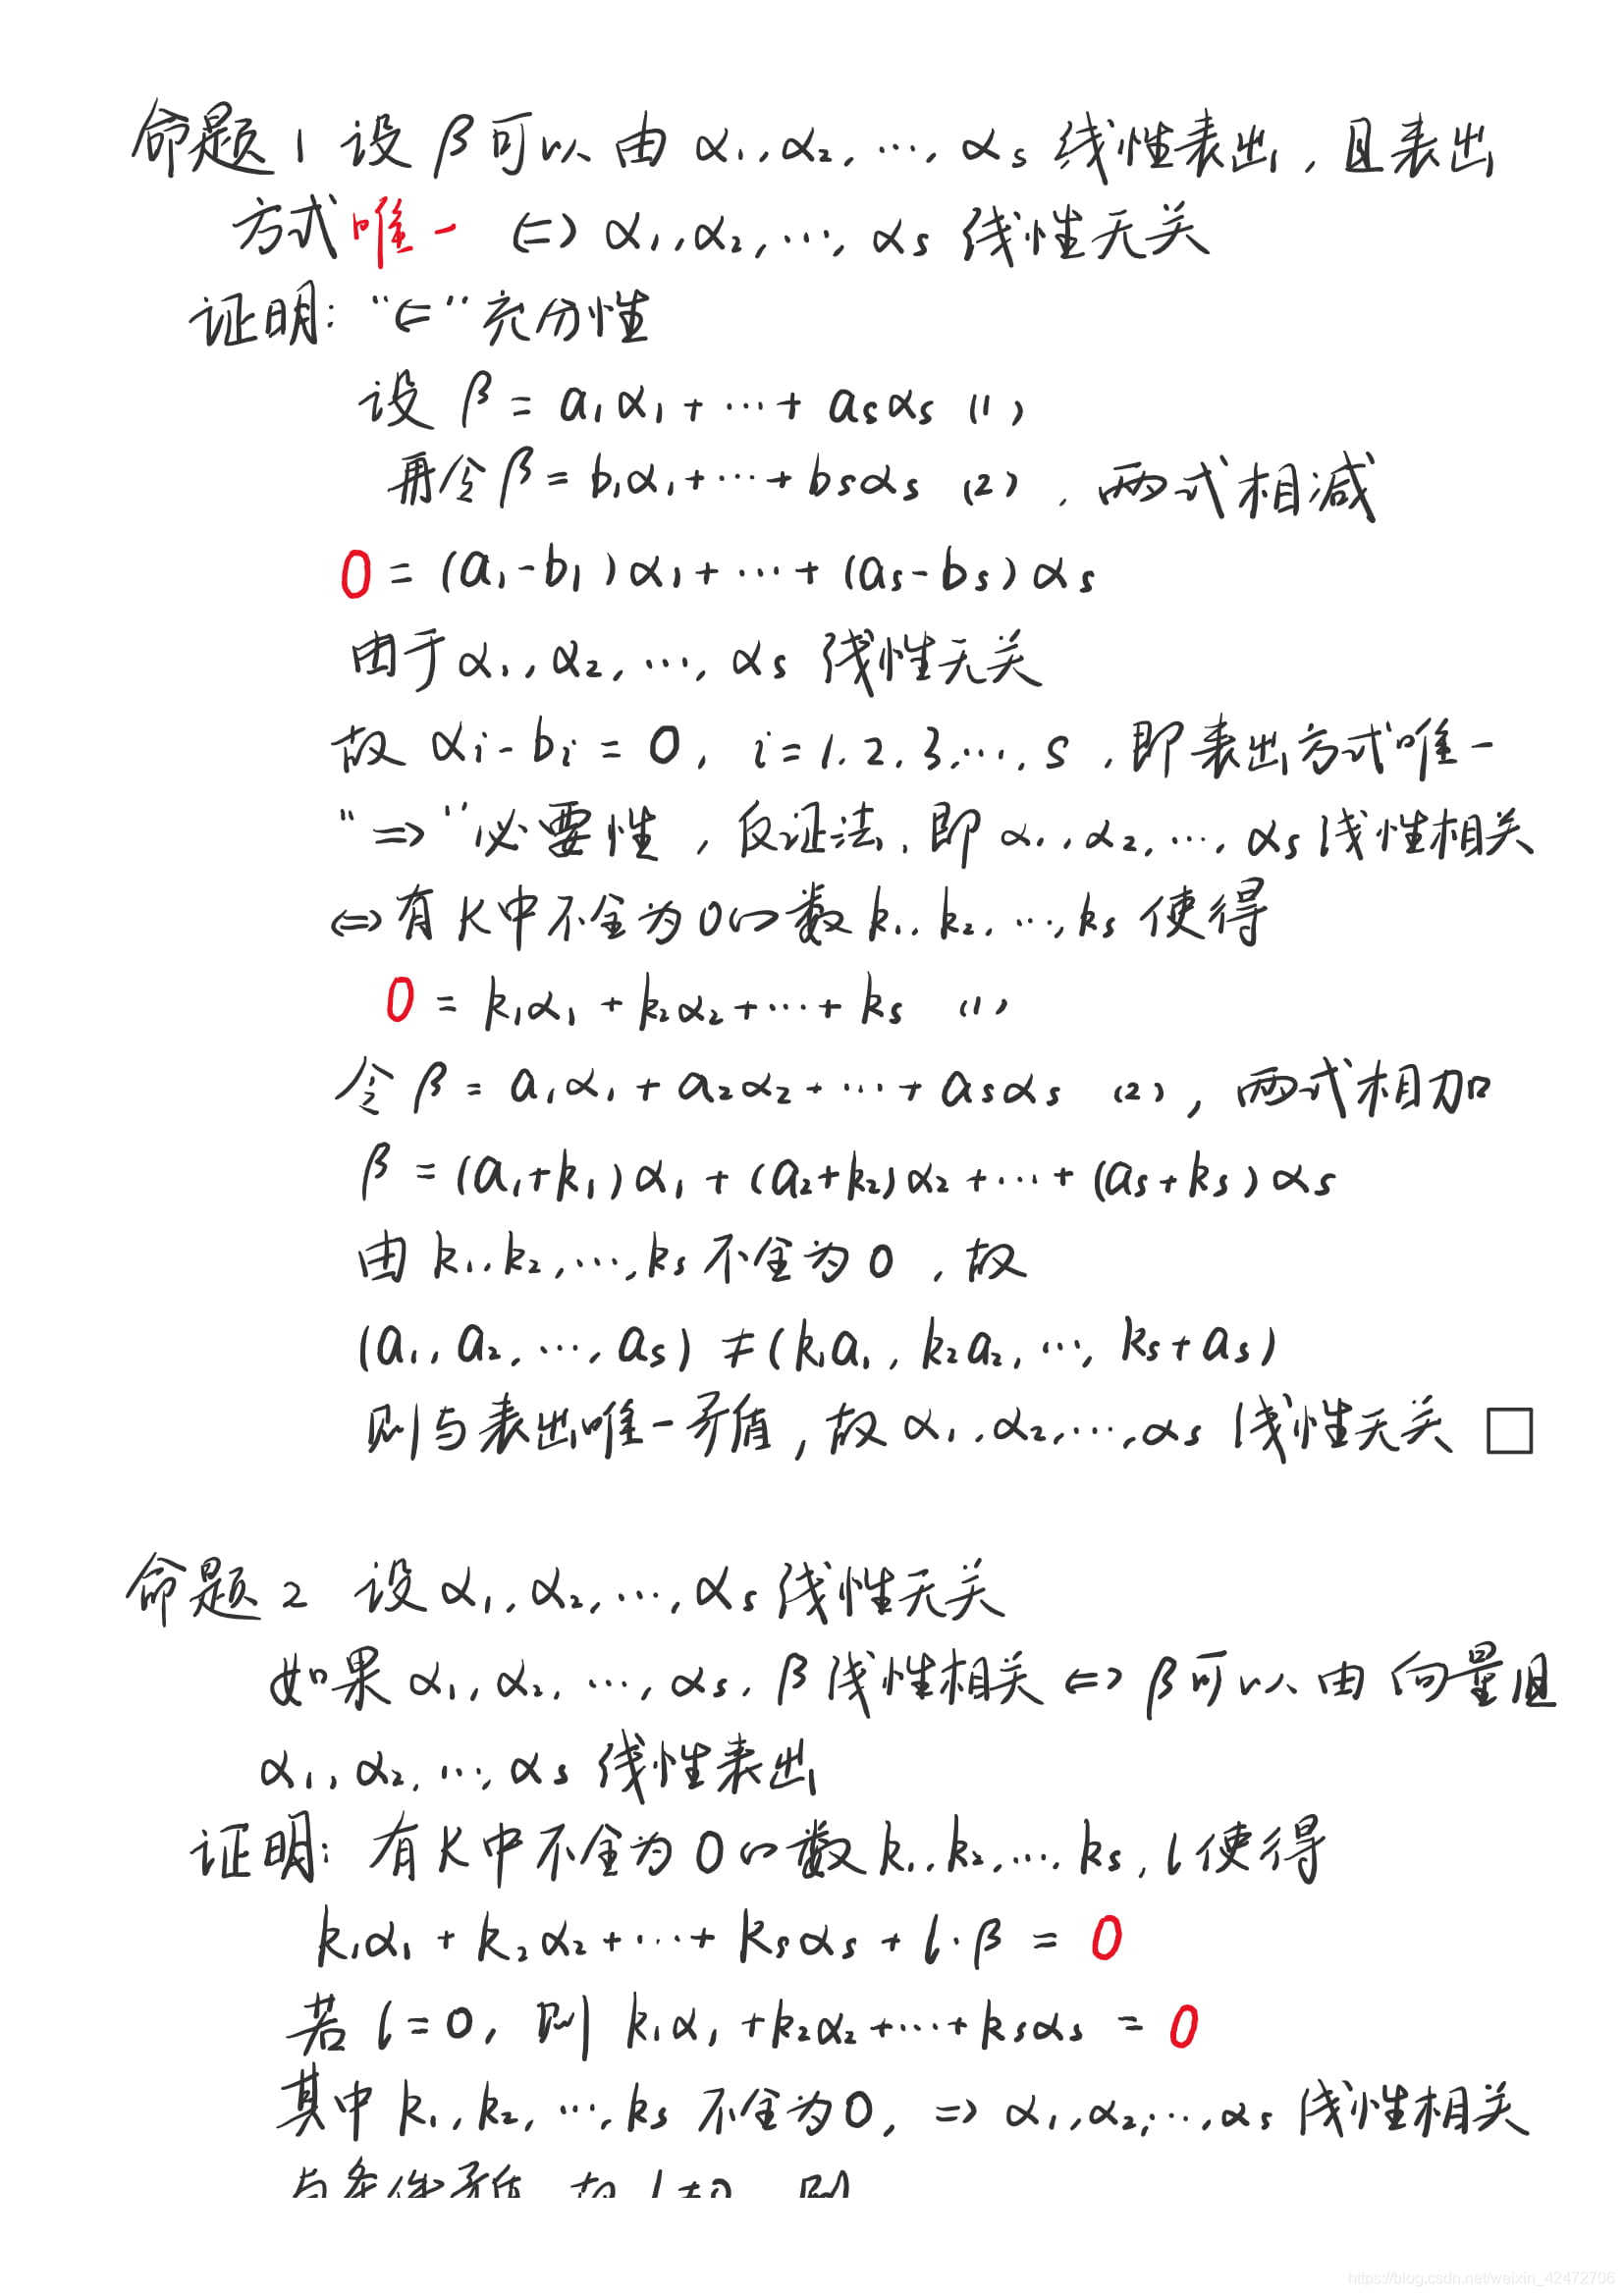 命题1 设β可以由α₁,α₂,…,αₛ线性表出,且表出
方式唯一 ⇔ α₁,α₂,…,αₛ线性无关
证明: "⇐"充分性
设β=a₁α₁+…+aₛαₛ (1)
再令β=b₁α₁+…+bₛαₛ (2),两式相减
0=(a₁-b₁)α₁+…+(aₛ-bₛ)αₛ
由于α₁,α₂,…,αₛ线性无关
故αᵢ-bᵢ=0, i=1.2.3,…,s,即表出方式唯一
"⇒"必要性,反证法,即α₁,α₂,…,αₛ线性相关
⇔有K中不全为0的数k₁,k₂,…,kₛ使得
0=k₁α₁+k₂α₂+…+kₛ (1)
令β=a₁α₁+a₂α₂+…+aₛαₛ (2),两式相加
β=(a₁+k₁)α₁+(a₂+k₂)α₂+…+(aₛ+kₛ)αₛ
由k₁,k₂,…,kₛ不全为0,故
(a₁,a₂,…,aₛ)≠(k₁a₁,k₂a₂,…,kₛ+aₛ)
则与表出唯一矛盾,故α₁,α₂,…,αₛ线性无关 □
命题2 设α₁,α₂,…,αₛ线性无关
如果α₁,α₂,…,αₛ,β线性相关⇔β可以由向量组
α₁,α₂,…,αₛ线性表出
证明: 有K中不全为0的数k₁,k₂,…,kₛ,l使得
k₁α₁+k₂α₂+…+kₛαₛ+l·β=0
若l=0,则k₁α₁+k₂α₂+…+kₛαₛ=0
其中k₁,k₂,…,kₛ不全为0,⇒α₁,α₂,…,αₛ线性相关
与条件矛盾,故l≠0,则
https://blog.csdn.net/weixin_42472706